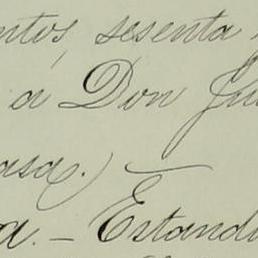 ntos, sesenta
a Don Ju
asa.) —
a. — Estand